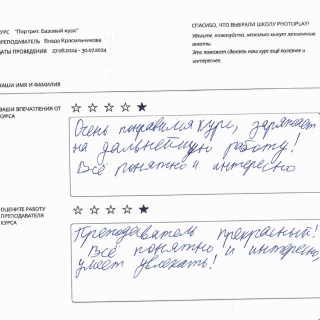 КУРС "Портрет. Базовый курс"
ПРЕПОДАВАТЕЛЬ Влада Красильникова
ДАТЫ ПРОВЕДЕНИЯ 27.06.2024 - 30.07.2024
СПАСИБО, ЧТО ВЫБРАЛИ ШКОЛУ PHOTOPLAY!
Уделите, пожалуйста, несколько минут заполнению
анкеты.
Это поможет сделать наш курс ещё полезнее и
интереснее.
ВАШИ ИМЯ И ФАМИЛИЯ
ВАШИ ВПЕЧАТЛЕНИЯ ОТ
КУРСА
Очень понравился курс, заряжает
на дальнейшую работу!
Всё понятно и интересно
ОЦЕНИТЕ РАБОТУ
ПРЕПОДАВАТЕЛЯ
КУРСА
Преподаватель прекрасный!
Всё понятно и интересно,
умеет увлекать!